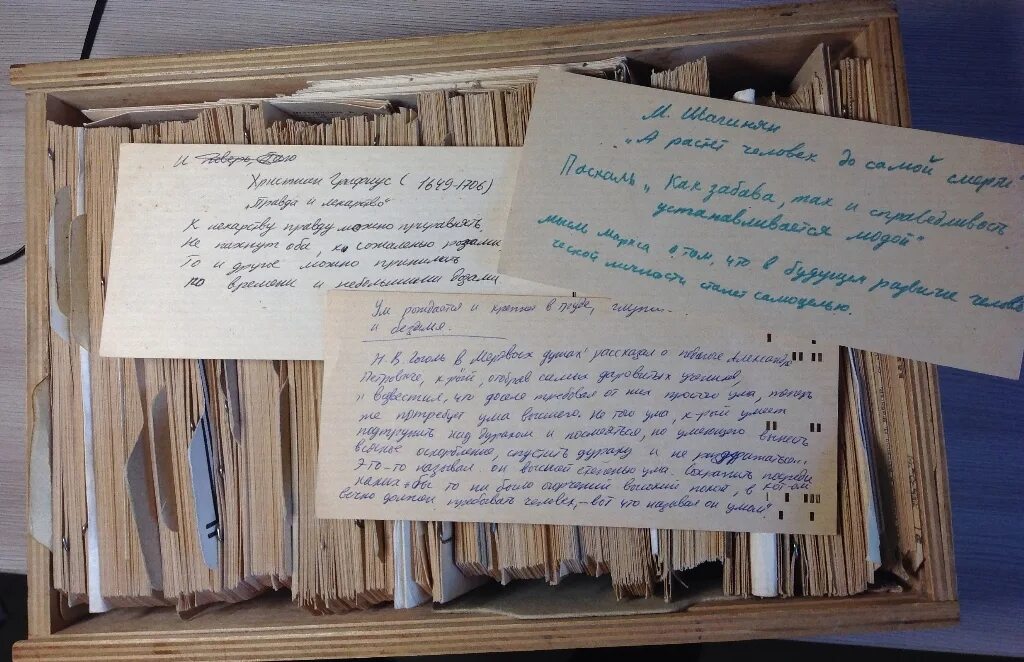 И
Христиан Грифиус (1649-1706)
"Правда и лекарство"
К лекарству правду можно приравнять,
Не пахнут обе, к сожаленью розами
То и другое можно принимать
по времени и небольшими дозами
М. Шагинян
"А растет человек до самой смерти"
Паскаль "Как забава, так и справедливость
устанавливается модой"
мысль Маркса о том, что в будущем развитие челове
ческой личности станет самоцелью.
Ум рождается и крепнет в труде,
и безделья.
Н. В. Гоголь в "Мертвых душах" рассказал о Александре
Петровиче, к-рый, отобрав самых даровитых учеников,
"известил, что доселе требовал от них простого ума, теперь
же потребует ума высшего. Не того ума, к-рый умеет
подтрунить над дураком и посмеяться, но умеющего вынесть
всякое оскорбление, спустить дураку и не раздражаться.
Это-то называл он высшей степенью ума. Сохранить посреди
каких бы то ни было огорчений высокий покой, в кот-ом
вечно должен пребывать человек, - вот что называл он умом".